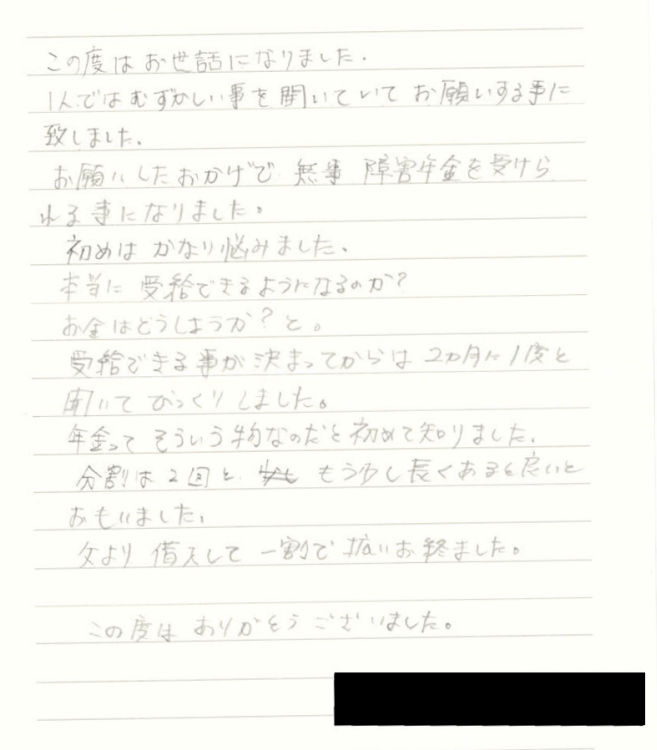 この度はお世話になりました.
1人ではむずかしい事を聞いていて お願いする事に
致しました.
お願いしたおかげで 無事 障害年金を受けら
れる事になりました。
初めは かなり悩みました、
本当に 受給できるようになるのか?
お金はどうしようか?と。
受給できる事が決まってからは 2カ月に1度と
聞いて びっくりしました。
年金って そういう物なのだと初めて知りました.
分割は2回と もう少し長くあると良いと
おもいました.
父より 借入して 一割で払いお終ました。
この度は ありがそうございました。